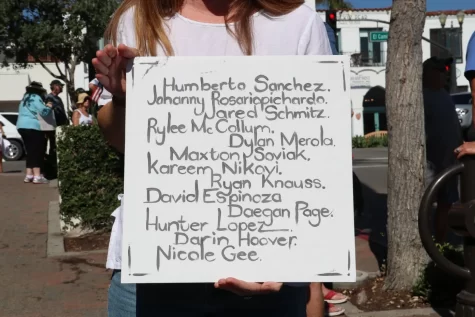 Humberto Sanchez.
Johanny Rosariopichardo.
Jared Schmitz.
Rylee McCollum.
Dylan Merola.
Maxton Soviak.
Kareem Nikovi.
Ryan Knauss.
David Espinoza
Daegan Page.
Hunter Lopez
Darin Hoover.
Nicole Gee.